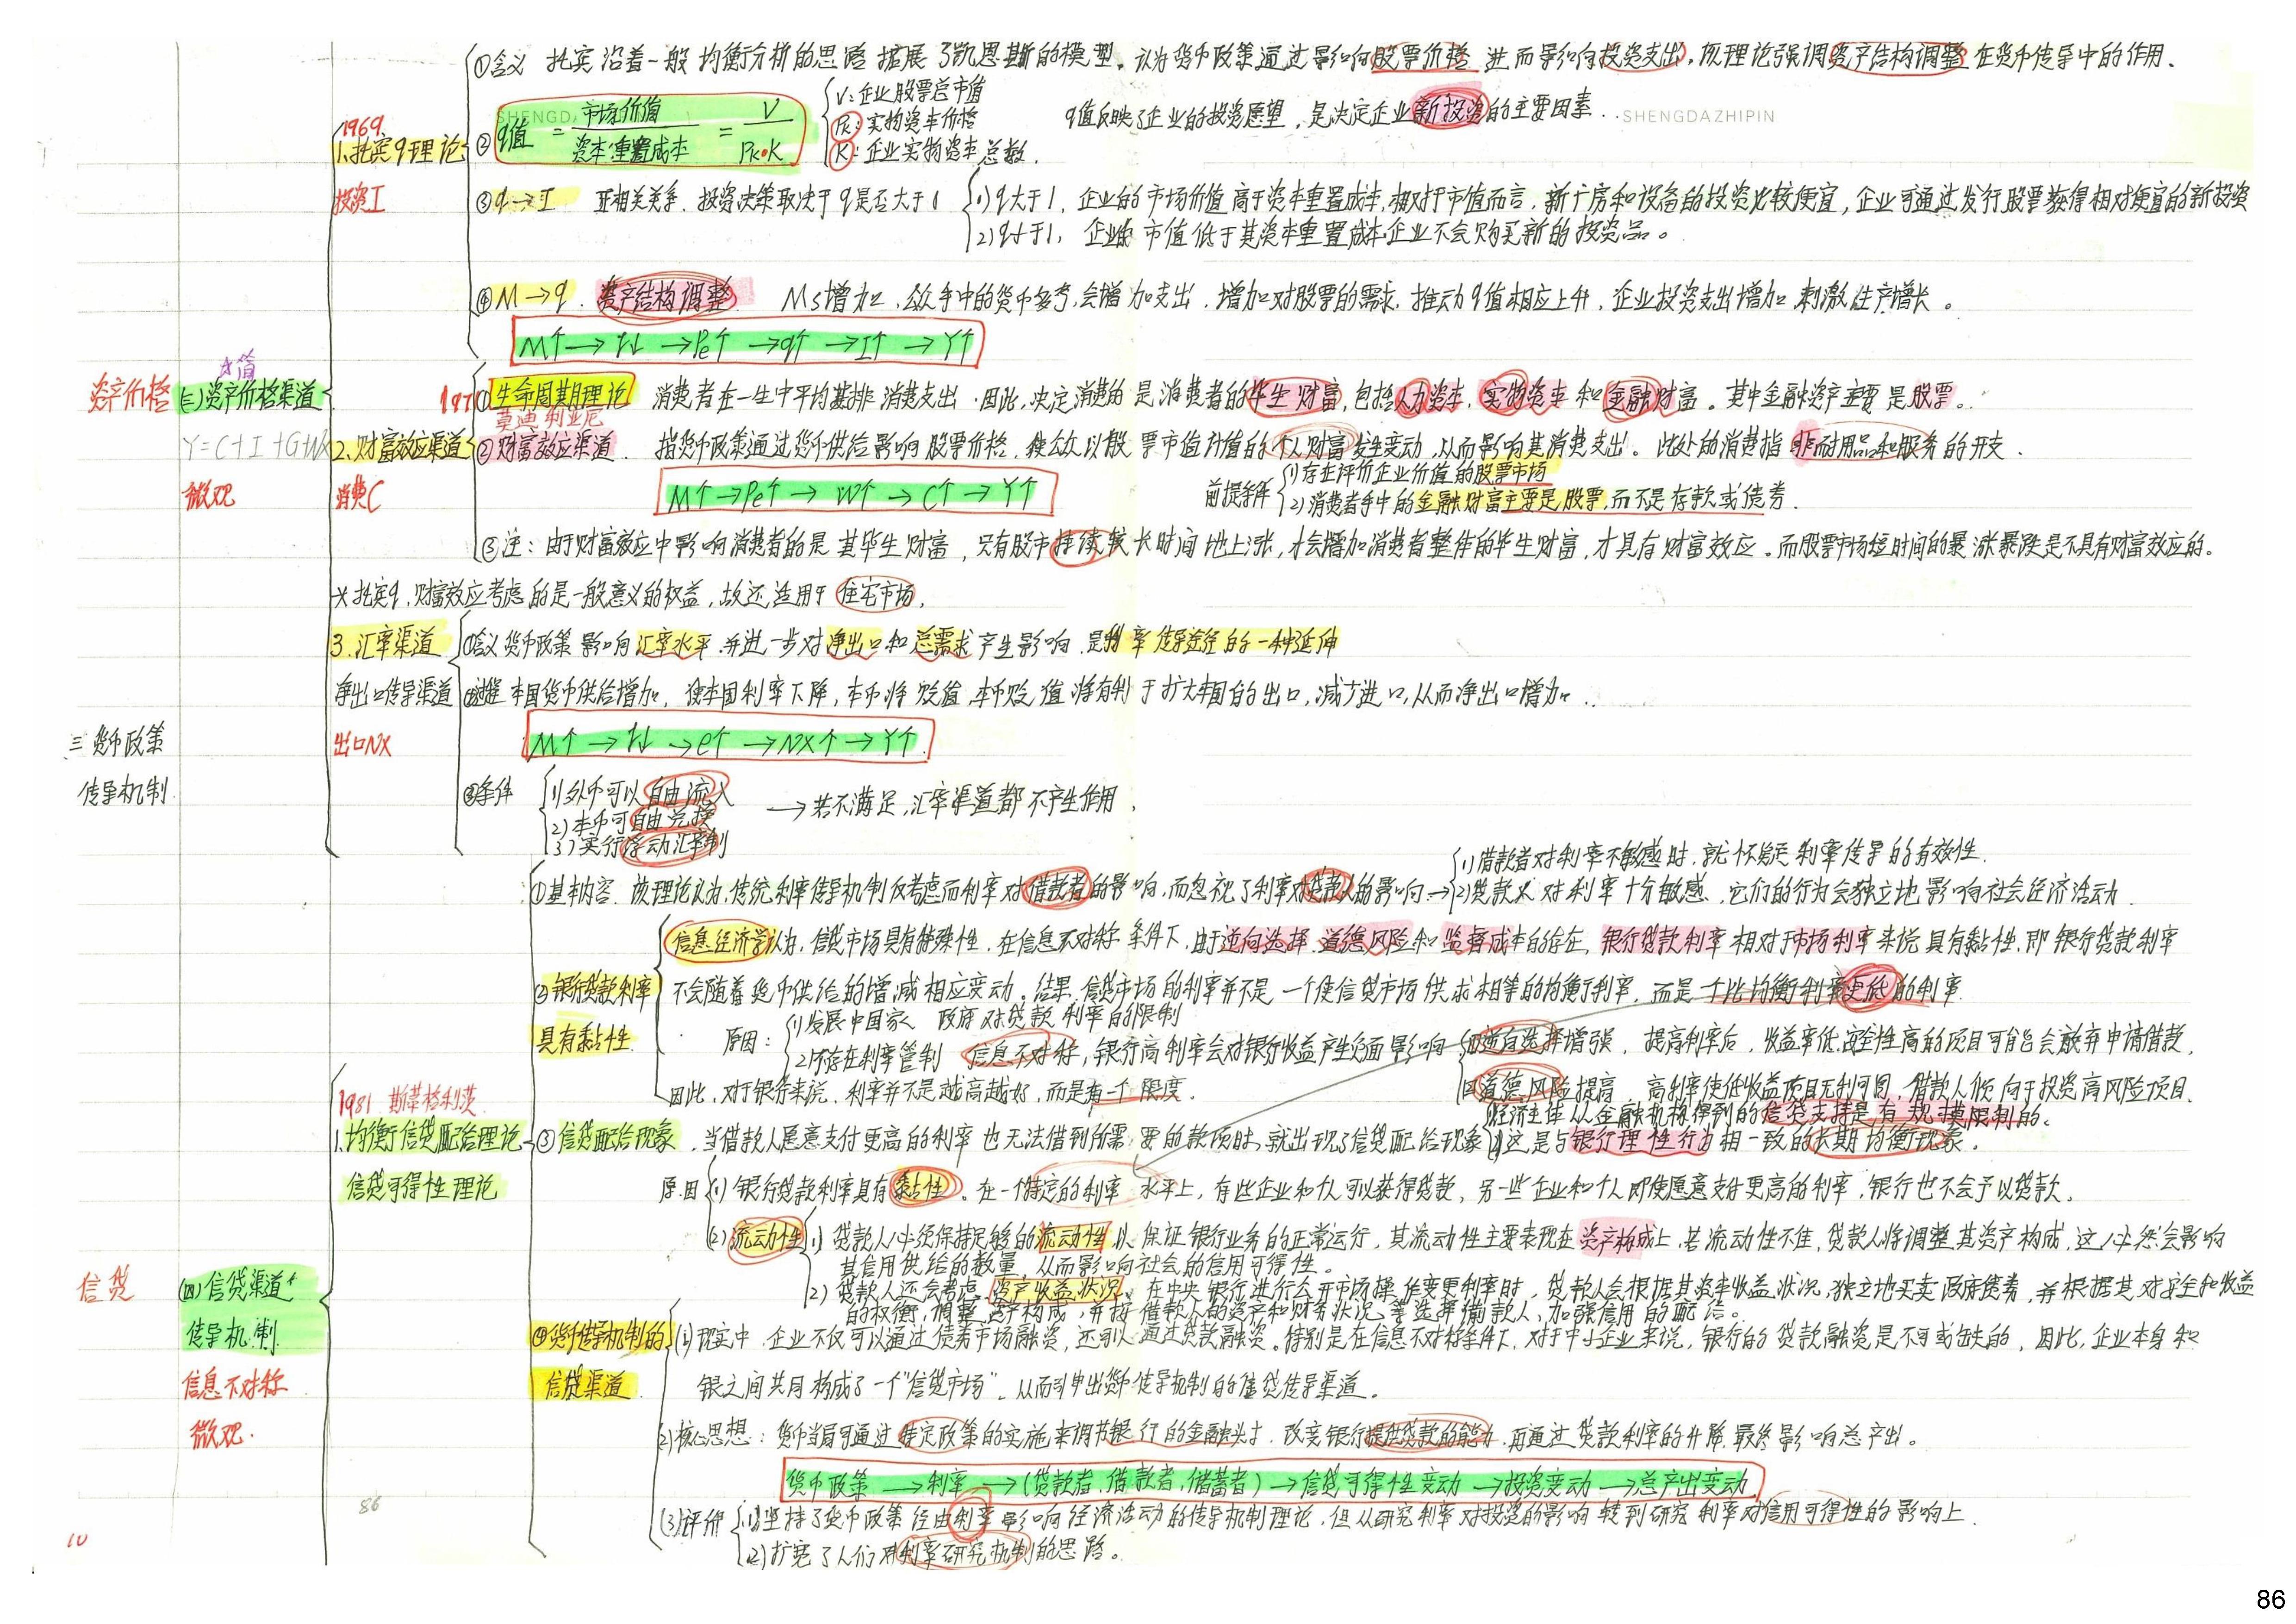 三 货币政策
传导机制
资产价格
☆简
(三)资产价格渠道
Y=C+I+G+NX
微观
1969
1.托宾q理论
投资I
①含义 托宾沿着一般均衡分析的思路扩展了凯恩斯的模型。认为货币政策通过影响股票价格进而影响投资支出,该理论强调资产结构调整在货币传导中的作用。
SHENGDAZHIPIN
② q值 = 市场价值/资本重置成本 = V/Pk·K
V:企业股票总市值
Pk:实物资本价格
K:企业实物资本总数.
q值反映了企业的投资愿望,是决定企业新投资的主要因素.
③q→I 正相关关系.投资决策取决于q是否大于1
(1)q大于1,企业的市场价值高于资本重置成本,相对于市值而言,新厂房和设备的投资比较便宜,企业可通过发行股票获得相对便宜的新投资
(2)q小于1,企业的市值低于其资本重置成本企业不会购买新的投资品。
④M→q.资产结构调整 Ms增加,公众手中的货币多了,会增加支出,增加对股票的需求,推动q值相应上升,企业投资支出增加,刺激生产增长。
M↑→r↓→Pe↑→q↑→I↑→Y↑
2.财富效应渠道
消费C
①生命周期理论 消费者在一生中平均安排消费支出.因此,决定消费的是消费者的毕生财富,包括人力资本、实物资本和金融财富。其中金融资产主要是股票。
莫迪利亚尼
②财富效应渠道.指货币政策通过货币供给影响股票价格,使公众以股票市值计值的个人财富发生变动,从而影响其消费支出。此处的消费指非耐用品和服务的开支.
M↑→Pe↑→W↑→C↑→Y↑
前提条件
(1)存在评价企业价值的股票市场
(2)消费者手中的金融财富主要是股票,而不是存款或债券.
③注:由于财富效应中影响消费者的是其毕生财富,只有股市持续较长时间地上涨,才会增加消费者整体的毕生财富,才具有财富效应。而股票市场短时间的暴涨暴跌是不具有财富效应的。
*托宾q,财富效应考虑的是一般意义的权益,故还适用于住宅市场.
3.汇率渠道
净出口传导渠道
出口NX
①含义 货币政策影响汇率水平.并进一步对净出口和总需求产生影响.是利率传导途径的一种延伸
②过程 本国货币供给增加,使本国利率下降,本币将贬值,本币贬值将有利于扩大本国的出口,减少进口,从而净出口增加.
M↑→r↓→e↑→NX↑→Y↑
③条件
(1)外币可以自由流入
(2)本币可自由兑换
(3)实行浮动汇率制
→若不满足,汇率渠道都不产生作用.
信贷
(四)信贷渠道
传导机制
信息不对称
微观.
1981.斯蒂格利茨
1.均衡信贷配给理论
信贷可得性理论
①基本内容.该理论认为,传统利率传导机制仅考虑利率对借款者的影响,而忽视了利率对贷款人的影响→
(1)借款者对利率不敏感时,就怀疑利率传导的有效性.
(2)贷款人对利率十分敏感.它们的行为会独立地影响社会经济活动.
②银行贷款利率
具有黏性.
信息经济学认为,信贷市场具有特殊性,在信息不对称条件下,由于逆向选择、道德风险和监督成本的存在,银行贷款利率相对于市场利率来说具有黏性.即银行贷款利率
不会随着货币供给的增减相应变动。结果,信贷市场的利率并不是一个使信贷市场供求相等的均衡利率,而是一个比均衡利率更低的利率.
原因:
(1)发展中国家 政府对贷款利率的限制
(2)不存在利率管制 信息不对称,银行高利率会对银行收益产生负面影响
逆向选择增强,提高利率后,收益率低,安全性高的项目可能会放弃申请借款.
道德风险提高,高利率使低收益项目无利可图,借款人倾向于投资高风险项目.
因此,对于银行来说,利率并不是越高越好,而是有一个限度。
③信贷配给现象.当借款人愿意支付更高的利率也无法借到所需要的款项时,就出现了信贷配给现象
经济主体从金融机构得到的信贷支持是有规模限制的.
这是与银行理性行为相一致的长期均衡现象。
原因
(1)银行贷款利率具有黏性。在一个特定的利率水平上,有些企业和个人可以获得贷款,另一些企业和个人即使愿意支付更高的利率,银行也不会予以贷款.
(2)流动性
(1)贷款人必须保持足够的流动性,以保证银行业务的正常运行,其流动性主要表现在资产构成上.若流动性不佳,贷款人将调整其资产构成,这必然会影响
其信用供给的数量,从而影响社会的信用可得性。
(2)贷款人还会考虑资产收益状况.在中央银行进行公开市场操作变更利率时,贷款人会根据其资本收益状况,独立地买卖政府债券,并根据其对安全和收益
的权衡,调整资产构成,并按借款人的资产和财务状况等选择借款人,加强信用的配给。
④货币传导机制的
信贷渠道.
(1)现实中.企业不仅可以通过债券市场融资,还可以通过贷款融资。特别是在信息不对称条件下,对于中小企业来说,银行的贷款融资是不可或缺的,因此,企业本身和
银之间共同构成了一个“信贷市场”.从而引申出货币传导机制的信贷传导渠道。
(2)核心思想:货币当局可通过特定政策的实施来调节银行的金融头寸.改变银行提供贷款的能力,再通过贷款利率的升降最终影响总产出。
货币政策→利率→(贷款者,借款者,储蓄者)→信贷可得性变动→投资变动→总产出变动
(3)评价
(1)坚持了货币政策经由利率影响经济活动的传导机制理论,但从研究利率对投资的影响转到研究利率对信用可得性的影响上.
(2)扩宽了人们对利率研究机制的思路。
86
10
86